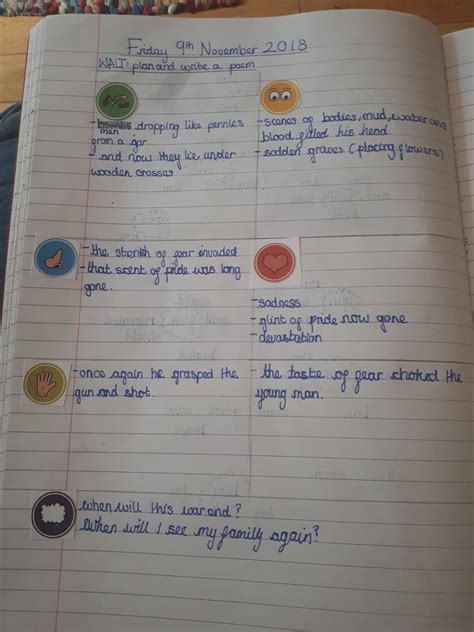 Friday 9th November 2018
WALT: plan and write a poem
- bombs dropping like pennies
men
from a jar.
- and now they lie under
wooden crosses
- scenes of bodies, mud, water and
blood filled his head.
- sodden graves (placing flowers)
- the stench of fear invaded
- that scent of pride was long
gone.
- sadness
- glint of pride now gone
- devastation
- once again he grasped the
gun and shot.
- the taste of fear choked the
young man.
when will this war end?
When will I see my family again?